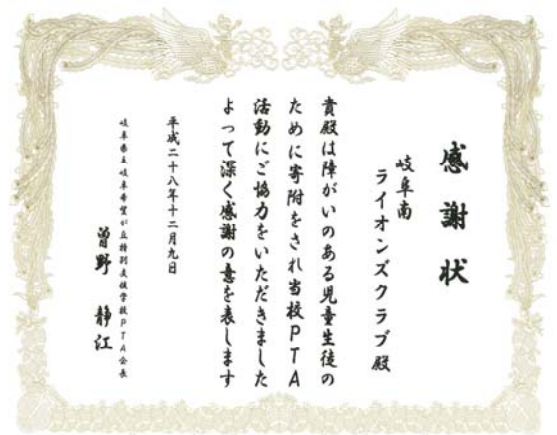 感謝状
岐阜南
ライオンズクラブ殿
貴殿は障がいのある児童生徒の
ために寄附をされ当校PTA
活動にご協力をいただきました
よって深く感謝の意を表します
平成二十八年十二月九日
岐阜県立岐阜希望が丘特別支援学校PTA会長
曽野 静江